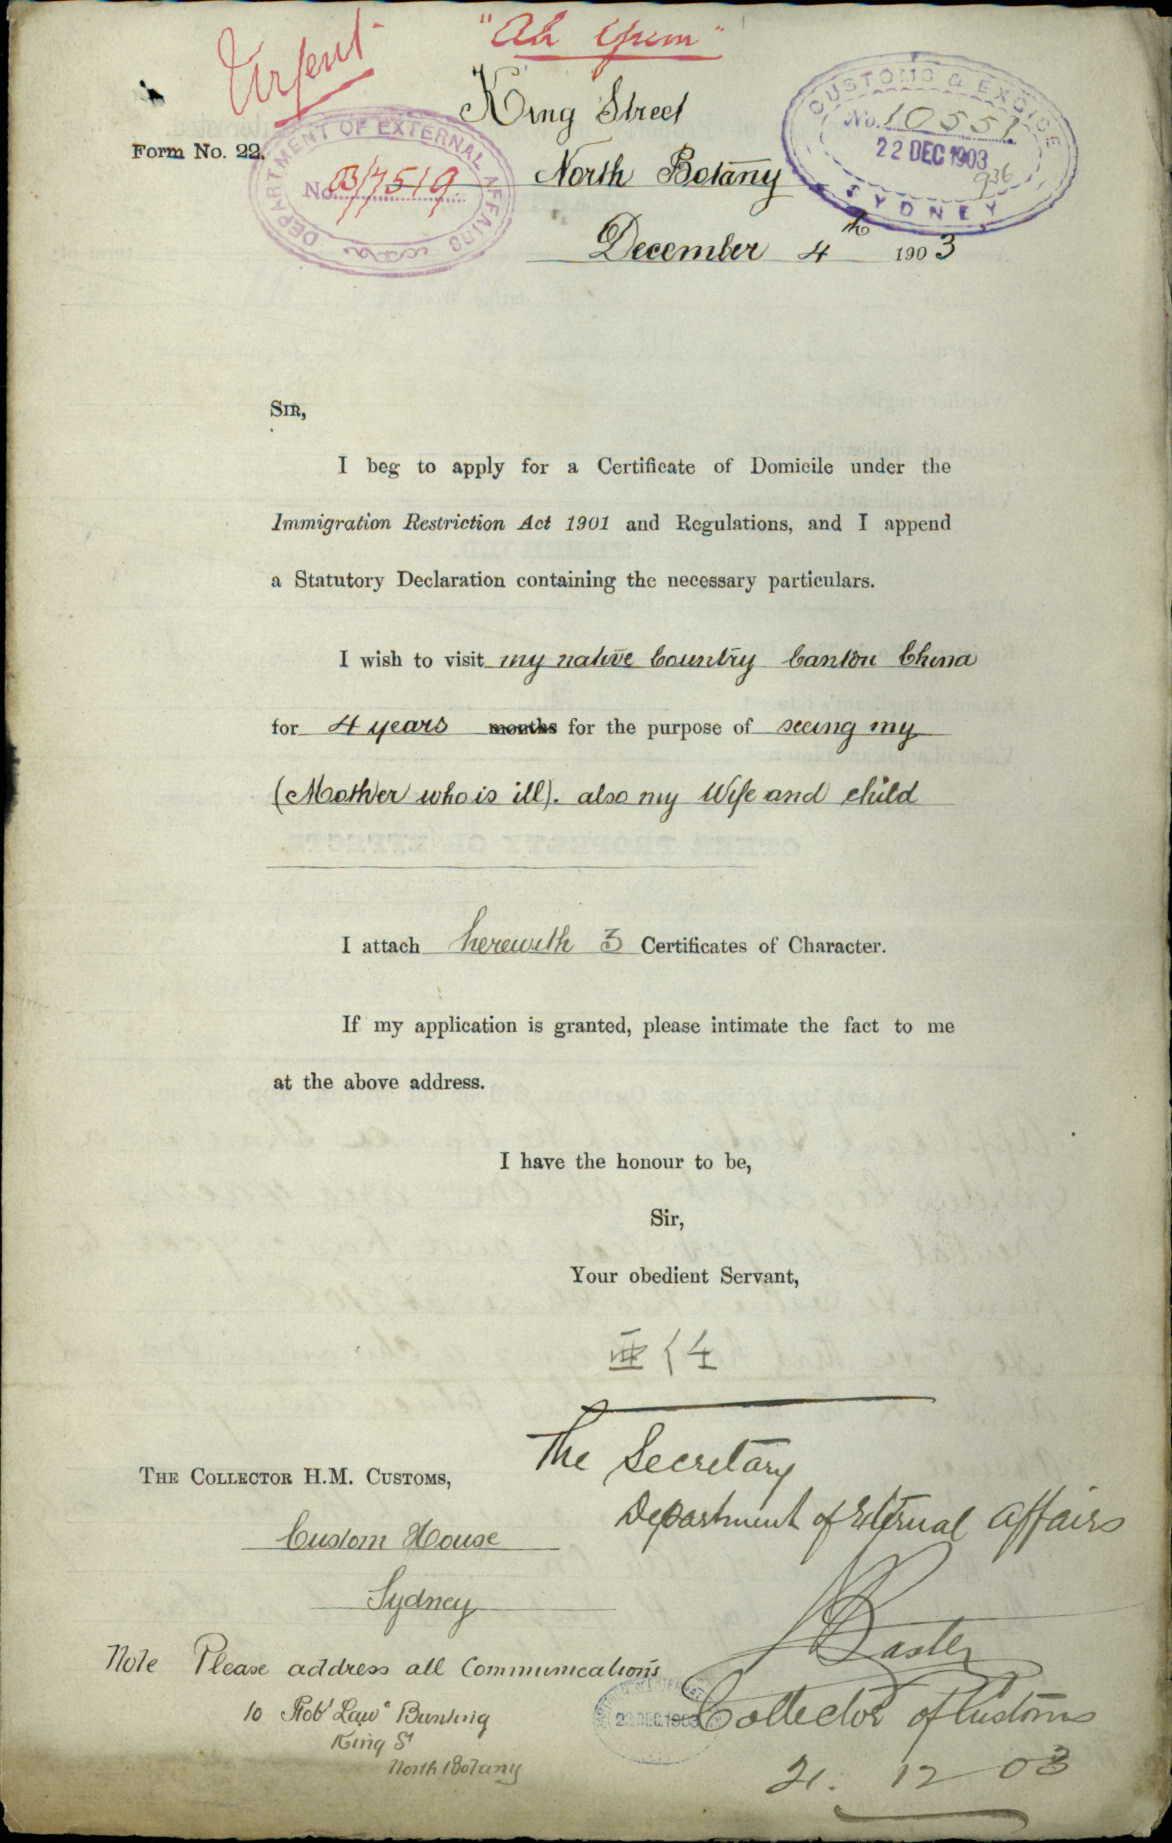 Urgent
"Ah Yum"
King Street
Form No. 22.
DEPARTMENT OF EXTERNAL AFFAIRS
No. 03/7519
North Botany
CUSTOMS & EXCISE
No. 10551
22 DEC 1903
936
SYDNEY
December 4th 1903
SIR,
I beg to apply for a Certificate of Domicile under the
Immigration Restriction Act 1901 and Regulations, and I append
a Statutory Declaration containing the necessary particulars.
I wish to visit my native Country Canton China
for 4 years months for the purpose of seeing my
(Mother who is ill). also my Wife and child
I attach herewith 3 Certificates of Character.
If my application is granted, please intimate the fact to me
at the above address.
I have the honour to be,
Sir,
Your obedient Servant,
The Secretary
THE COLLECTOR H.M. CUSTOMS,
Department of External Affairs
Custom House
Sydney
Baxter
Note Please address all Communications
to Robt Law Bunting
King St
North Botany
22 DEC 1903
Collector of Customs
21. 12 03